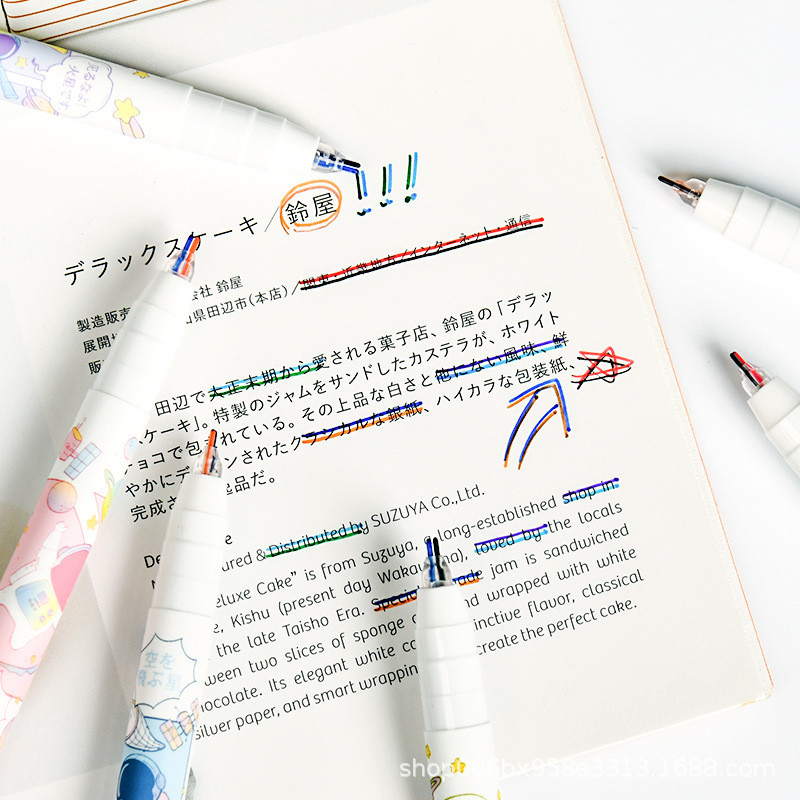 見るなよ!
火星です
デラックスケーキ/鈴屋 !!!
製造販売 会社 鈴屋
展開 山県田辺市(本店)/関東・近畿地方/インターネット・通信
販
田辺で大正末期から愛される菓子店、鈴屋の「デラッ
ケーキ」。特製のジャムをサンドしたカステラが、ホワイト
チョコで包まれている。その上品な白さと他にない風味、鮮
やかにデ ンされたクラシカルな銀紙、ハイカラな包装紙、
完成さ 逸品だ。
De e
ured & Distributed by SUZUYA Co.,Ltd.
eluxe Cake" is from Suzuya, a long-established shop in
e, Kishu (present day Wakayama), loved by the locals
the late Taisho Era. Specially made jam is sandwiched
ween two slices of sponge and wrapped with white
hocolate. Its elegant white co inctive flavor, classical
silver paper, and smart wrappin create the perfect cake.
空を
飛ぶ星